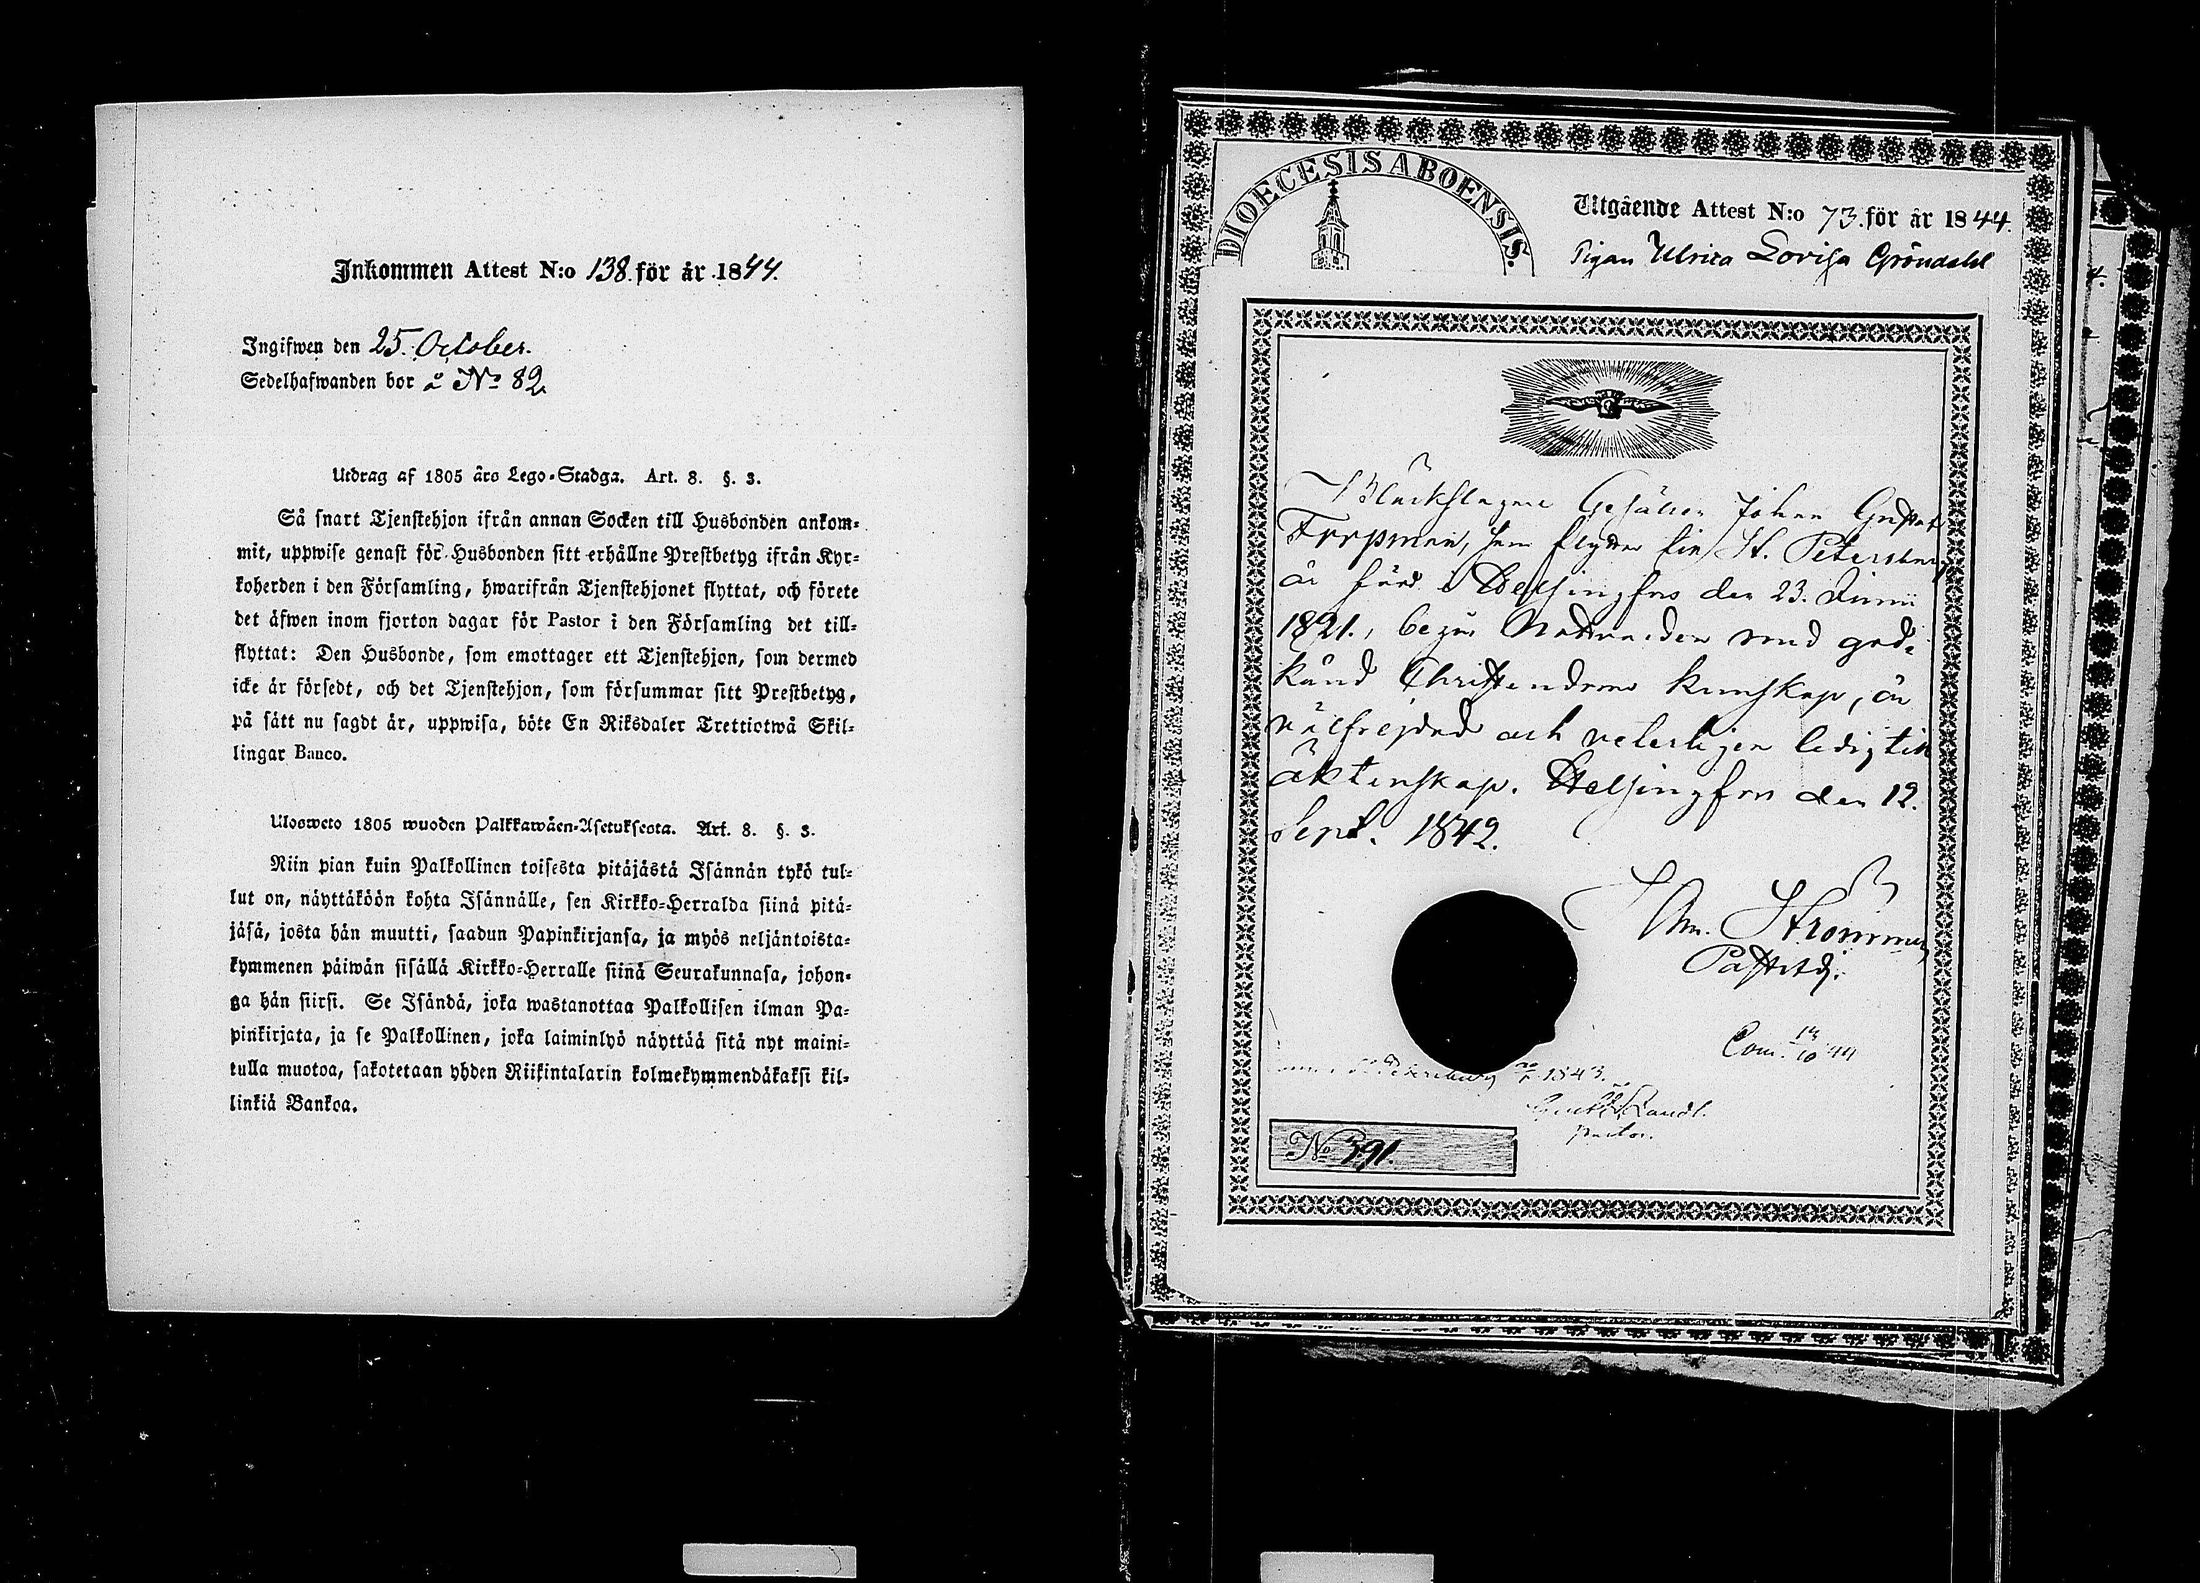 Inkommen Attest N:o 138. för år 1844.
Ingifwen den 25. October.
Sedelhafwanden bor å No 82.
Utdrag af 1805 års Lego-Stadga. Art. 8. §. 3.
Så snart Tjenstehjon ifrån annan Socken till Husbonden ankom-
mit, uppwise genast för Husbonden sitt erhållne Prestbetyg ifrån Kyr-
koherden i den Församling, hwarifrån Tjenstehjonet flyttat, och förete
det äfwen inom fjorton dagar för Pastor i den Församling det till-
flyttat: Den Husbonde, som emottager ett Tjenstehjon, som dermed
icke är försedt, och det Tjenstehjon, som försummar sitt Prestbetyg,
på sätt nu sagdt är, uppwisa, böte En Riksdaler Trettiotwå Skil-
lingar Banco.
Ulosweto 1805 wuoden Palkkawäen-Asetuksesta. Art. 8. §. 3.
Niin pian kuin Palkollinen toisesta pitäjästä Isännän tykö tul-
lut on, näyttäköön kohta Isännälle, sen Kirkko-Herralda siinä pitä-
jäsä, josta hän muutti, saadun Papinkirjansa, ja myös neljäntoista-
kymmenen päiwän sisällä Kirkko-Herralle siinä Seurakunnasa, johon-
ga hän siirsi. Se Isändä, joka wastanottaa Palkollisen ilman Pa-
pinkirjata, ja se Palkollinen, joka laiminlyö näyttää sitä nyt maini-
tulla muotoa, sakotetaan yhden Riikintalarin kolmekymmendäkaksi kil-
linkiä Bankoa.
DIOECESIS ABOENSIS.
Utgående Attest N:o 73. för år 1844.
Pigan Ulrica Lovisa Gröndahl
Bleckslagare Gesällen Johan Gustaf
som flyttar till St. Petersburg
är född i Helsingfors den 23. Junii
1821., begår Nattvarden med god-
känd Christendoms kunskap, är
välfrejdad och veterligen ledig till
äktenskap. Helsingfors den 12.
Sept. 1842.
Strömmer
Past.
Com. 14/10 44
St Petersburg 1843.
Pastor.
No 391.